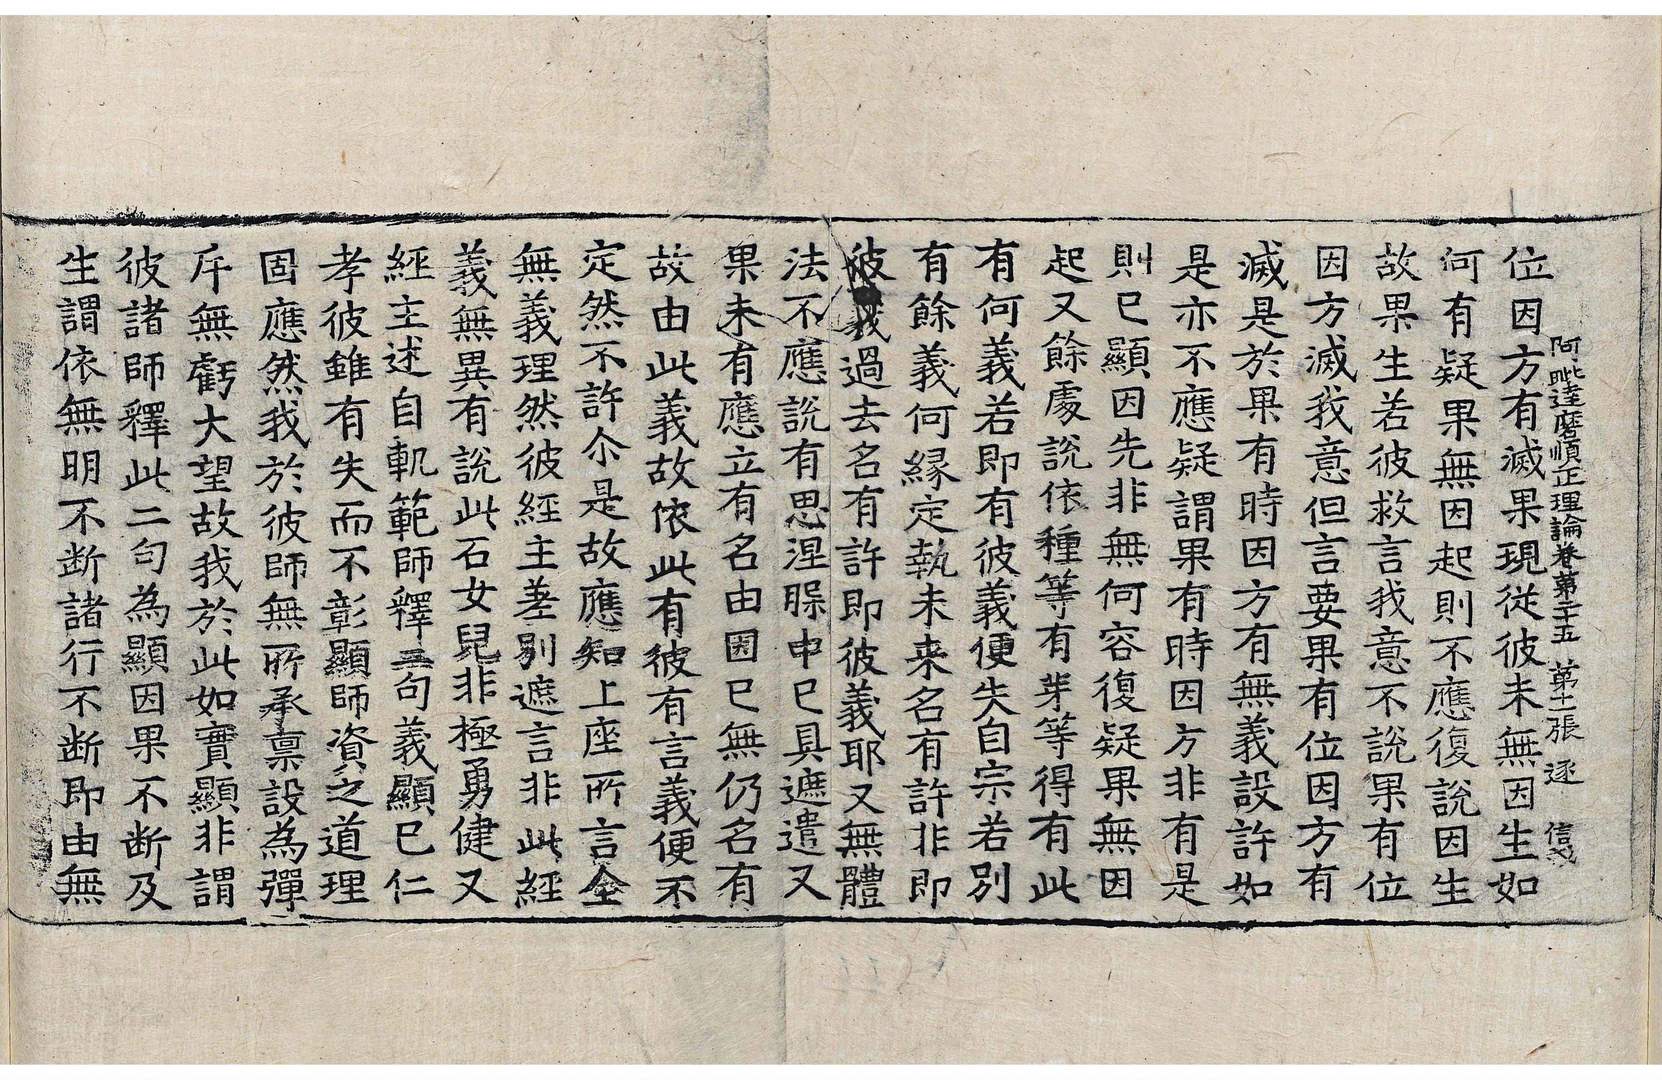 阿毗達磨順正理論卷第二十五 第十一張 逐 信戔
位因方有滅果現從彼未無因生如
何有疑果無因起則不應復說因生
故果生若彼救言我意不說果有位
因方滅我意但言要果有位因方有
滅是於果有時因方有無義設許如
是亦不應疑謂果有時因方非有是
則已顯因先非無何容復疑果無因
起又餘處說依種等有芽等得有此
有何義若即有彼義便失自宗若別
有餘義何緣定執未来名有許非即
彼義過去名有許即彼義耶又無體
法不應說有思涅槃中已具遮遣又
果未有應立有名由因已無仍名有
故由此義故依此有彼有言義便不
定然不許尒是故應知上座所言全
無義理然彼經主差別遮言非此經
義無異有說此石女兒非極勇健又
經主述自軌範師釋二句義顯已仁
孝彼雖有失而不彰顯師資之道理
固應然我於彼師無所承禀設為彈
斥無虧大望故我於此如實顯非謂
彼諸師釋此二句為顯因果不断及
生謂依無明不断諸行不断即由無